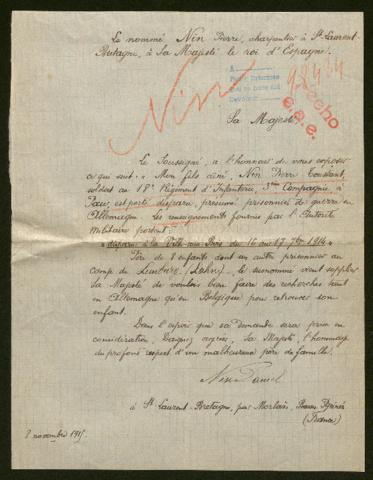 Le nommé Nin Pierre, charpentier à St Laurent
Bretagne, à Sa Majesté le roi d'Espagne.
Nin
98434
Hecho
e.a.e.
Sa Majesté
Le Soussigné, a l'honneur de vous exposer
ce qui suit: "Mon fils aîné, Nin Pierre Constant,
soldat au 18e Régiment d'Infanterie, 3me Compagnie, à
Pau, est porté disparu, présumé prisonnier de guerre en
Allemagne. Les renseignements fournis par l'autorité
militaire portent:
"disparu à la Ville aux Bois du 16 au 17 7bre 1914"
Père de 7 enfants dont un autre prisonnier au
camp de Limburg (Lahn), le susnommé vient supplier
Sa Majesté de vouloir bien faire des recherches tant
en Allemagne qu'en Belgique pour retrouver son
enfant.
Dans l'espoir que sa demande sera prise en
considération, Daignez agréer, Sa Majesté, l'hommage
du profond respect d'un malheureux père de famille.
Nin
à St Laurent-Bretagne, par Morlaàs, Basses Pyrénées
(France)
8 novembre 1915.